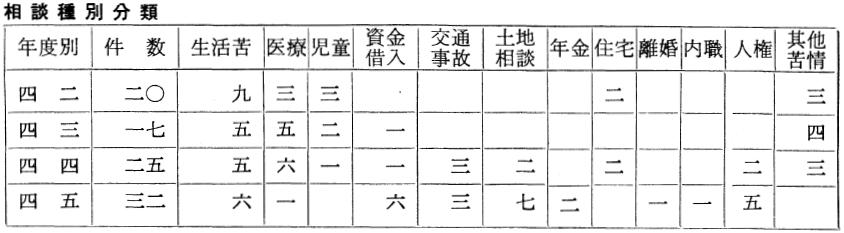 相談種別分類
年度別 件数 生活苦 医療 児童 資金借入 交通事故 土地相談 年金 住宅 離婚 内職 人権 其他苦情
四二 二〇 九 三 三 二 三
四三 一七 五 五 二 一 四
四四 二五 五 六 一 一 三 二 二 二 三
四五 三二 六 一 六 三 七 二 一 一 五